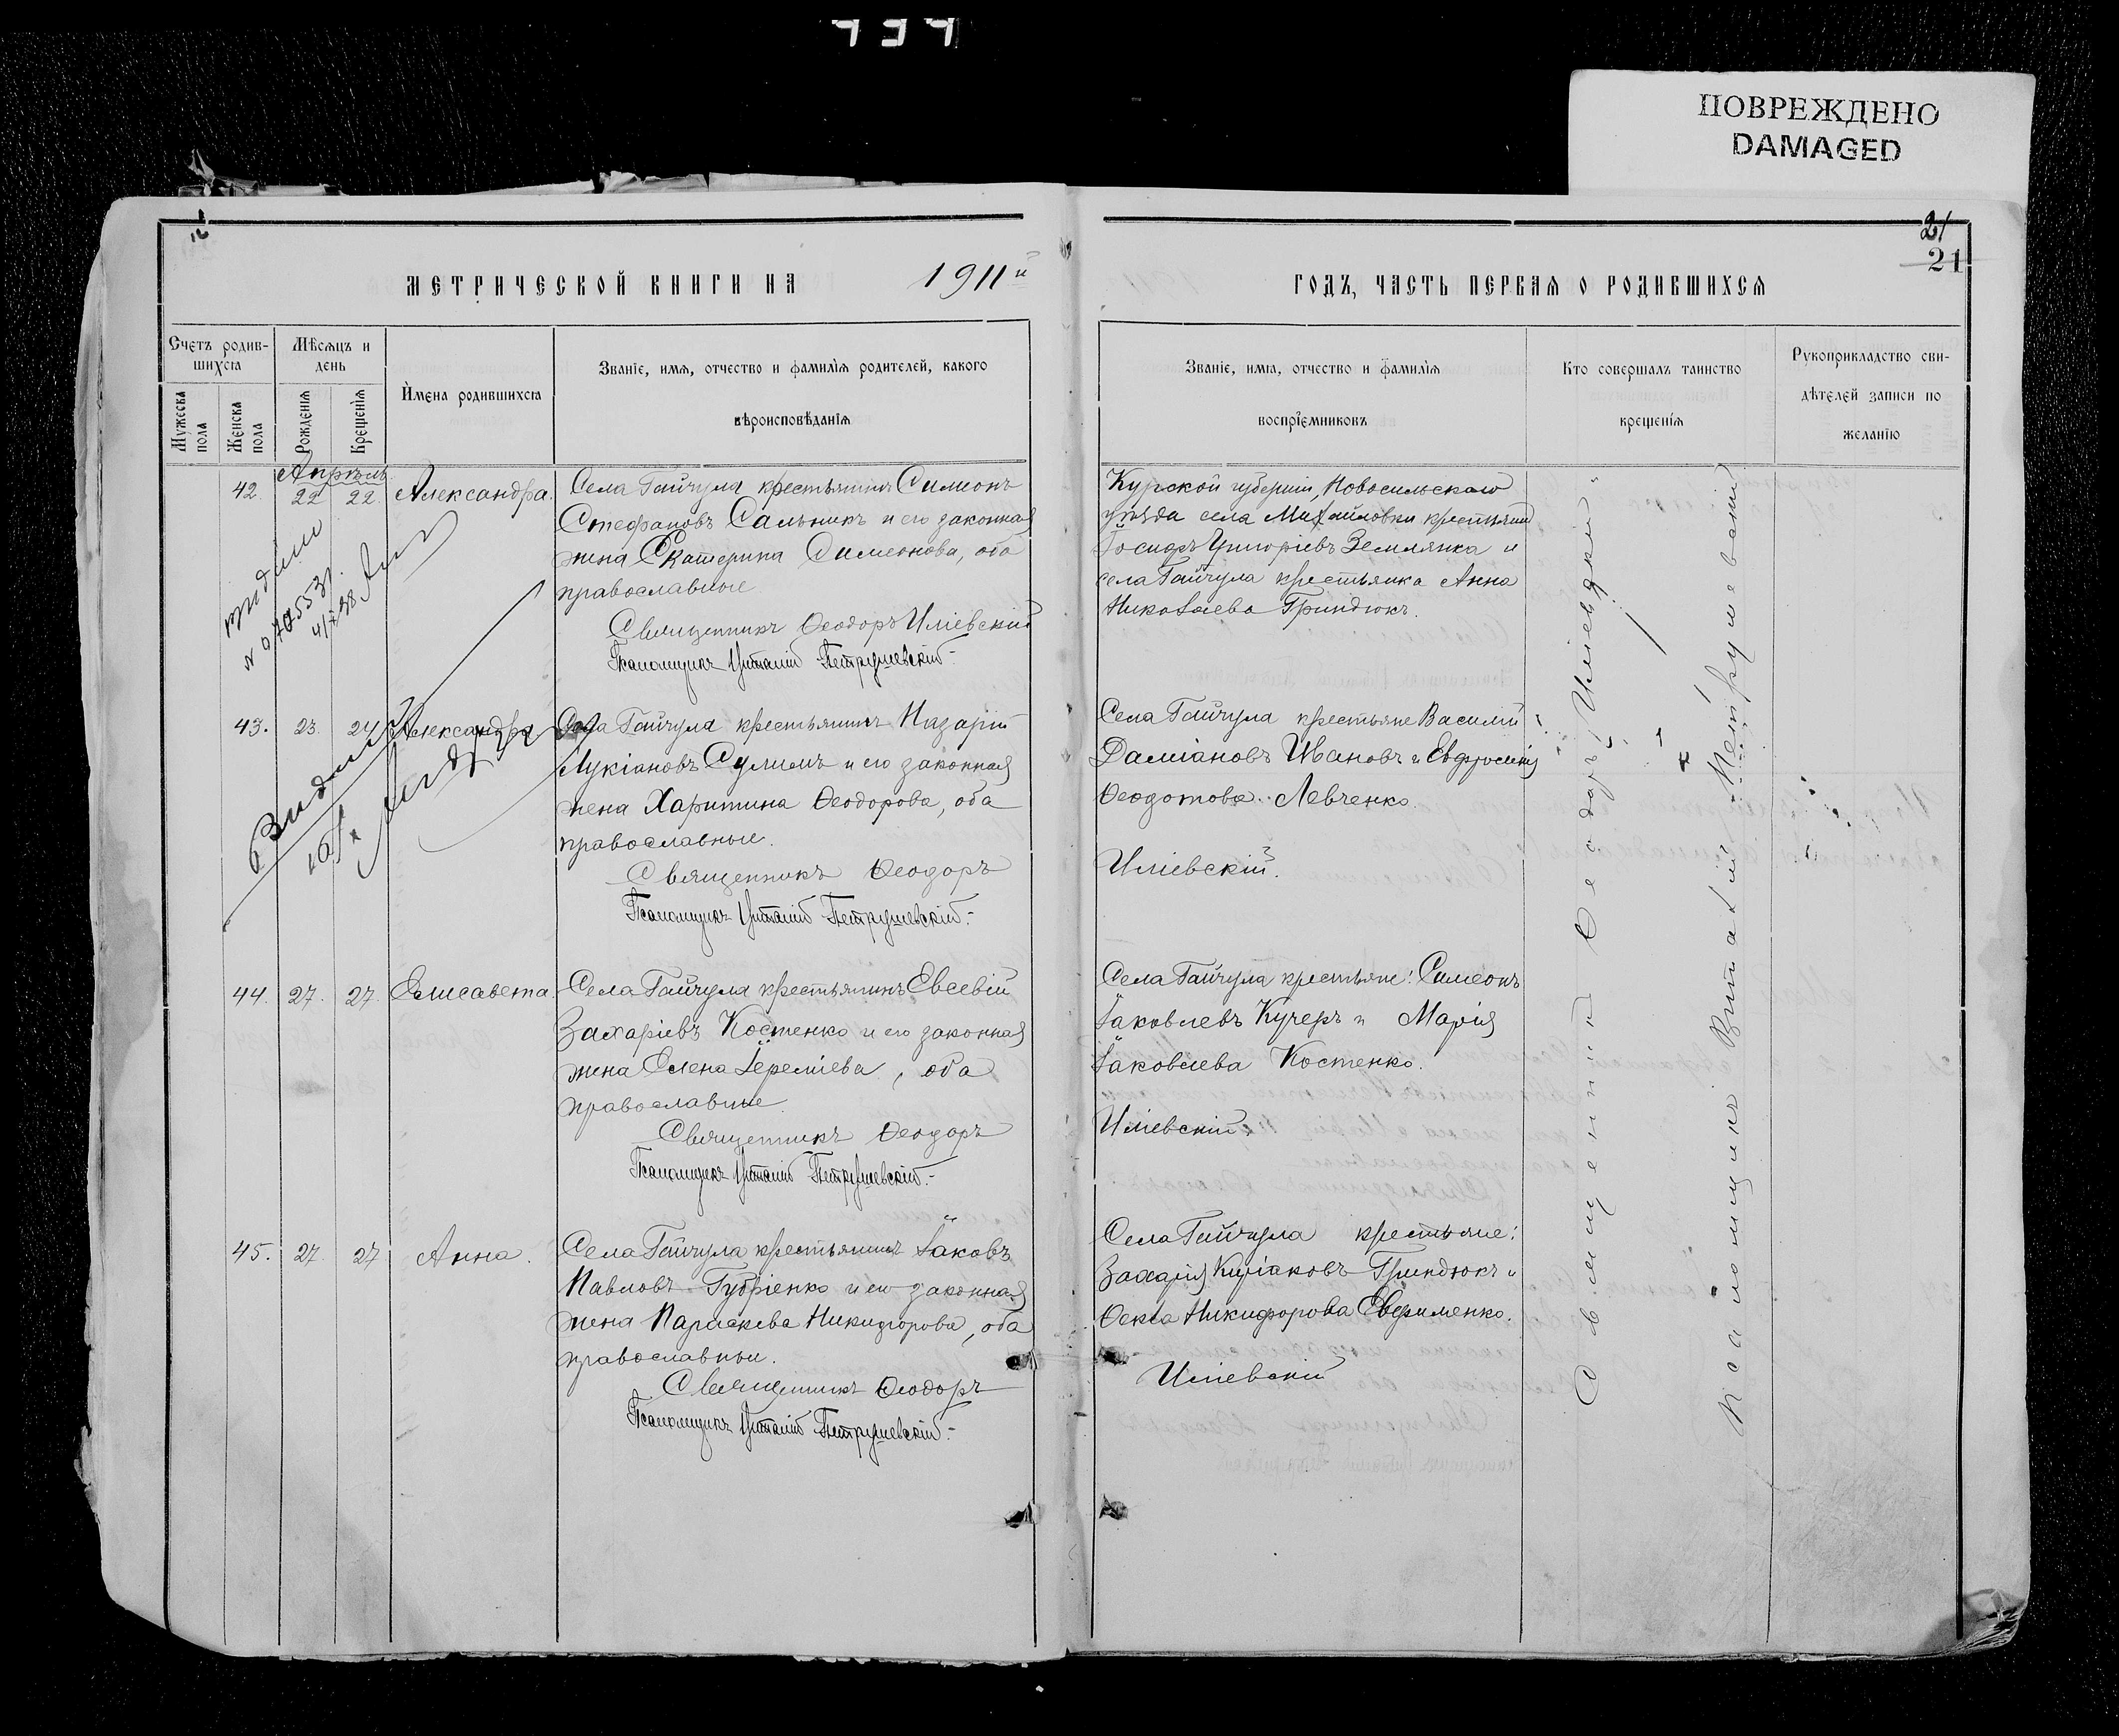 ПОВРЕЖДЕНО
DAMAGED
21
21
МЕТРИЧЕСКОЙ КНИГИ НА 1911й
ГОДЪ, ЧАСТЬ ПЕРВАЯ О РОДИВШИХСЯ
Счетъ родив-
шихся
Мѣсяцъ и
день
Имена родившихся
Званіе, имя, отчество и фамилія родителей, какого
вѣроисповѣданія
Мужеска
пола
Женска
пола
Рожденія
Крещенія
Званіе, имя, отчество и фамилія
воспріемниковъ
Кто совершалъ таинство
крещенія
Рукоприкладство сви-
дѣтелей записи по
желанію
Апрѣль
42. 22 22. Александра.
Села Гайчула крестьянинъ Симеонъ
Стефановъ Сальникъ и его законная
жена Екатерина Симеонова, оба
православные
Священникъ Ѳеодоръ Иліевскій
Псаломщикъ Виталій Петрушевскій.
Курской губерніи, Новосильскаго
уѣзда села Михайловки крестьянинъ
Іосифъ Григоріевъ Землянка и
села Гайчула крестьянка Анна
Николаева Гриндюкъ.
43. 23. 24 Александра
Села Гайчула крестьянинъ Назарій
Лукіановъ Сулимъ и его законная
жена Харитина Ѳеодорова, оба
православные.
Священникъ Ѳеодоръ
Псаломщикъ Виталій Петрушевскій.
Села Гайчула крестьяне Василій
Даміановъ Ивановъ и Евфросинія
Ѳеодотова Левченко.
Иліевскій.
44. 27. 27. Елисавета
Села Гайчула крестьянинъ Евсевій
Захаріевъ Костенко и его законная
жена Елена Іереміева, оба
православные
Священникъ Ѳеодоръ
Псаломщикъ Виталій Петрушевскій.
Села Гайчула крестьяне: Симеонъ
Іаковлевъ Кучеръ и Марія
Іаковлева Костенко.
Иліевскій.
45. 27. 27 Анна.
Села Гайчула крестьянинъ Іаковъ
Павловъ Губріенко и его законная
жена Параскева Никифорова, оба
православные.
Священникъ Ѳеодоръ
Псаломщикъ Виталій Петрушевскій.
Села Гайчула крестьяне:
Захарія Киріаковъ Гриндюкъ и
Ѳекла Никифорова Евфименко.
Иліевскій
Священникъ Ѳеодоръ Иліевскій
Псаломщикъ Виталій Петрушевскій